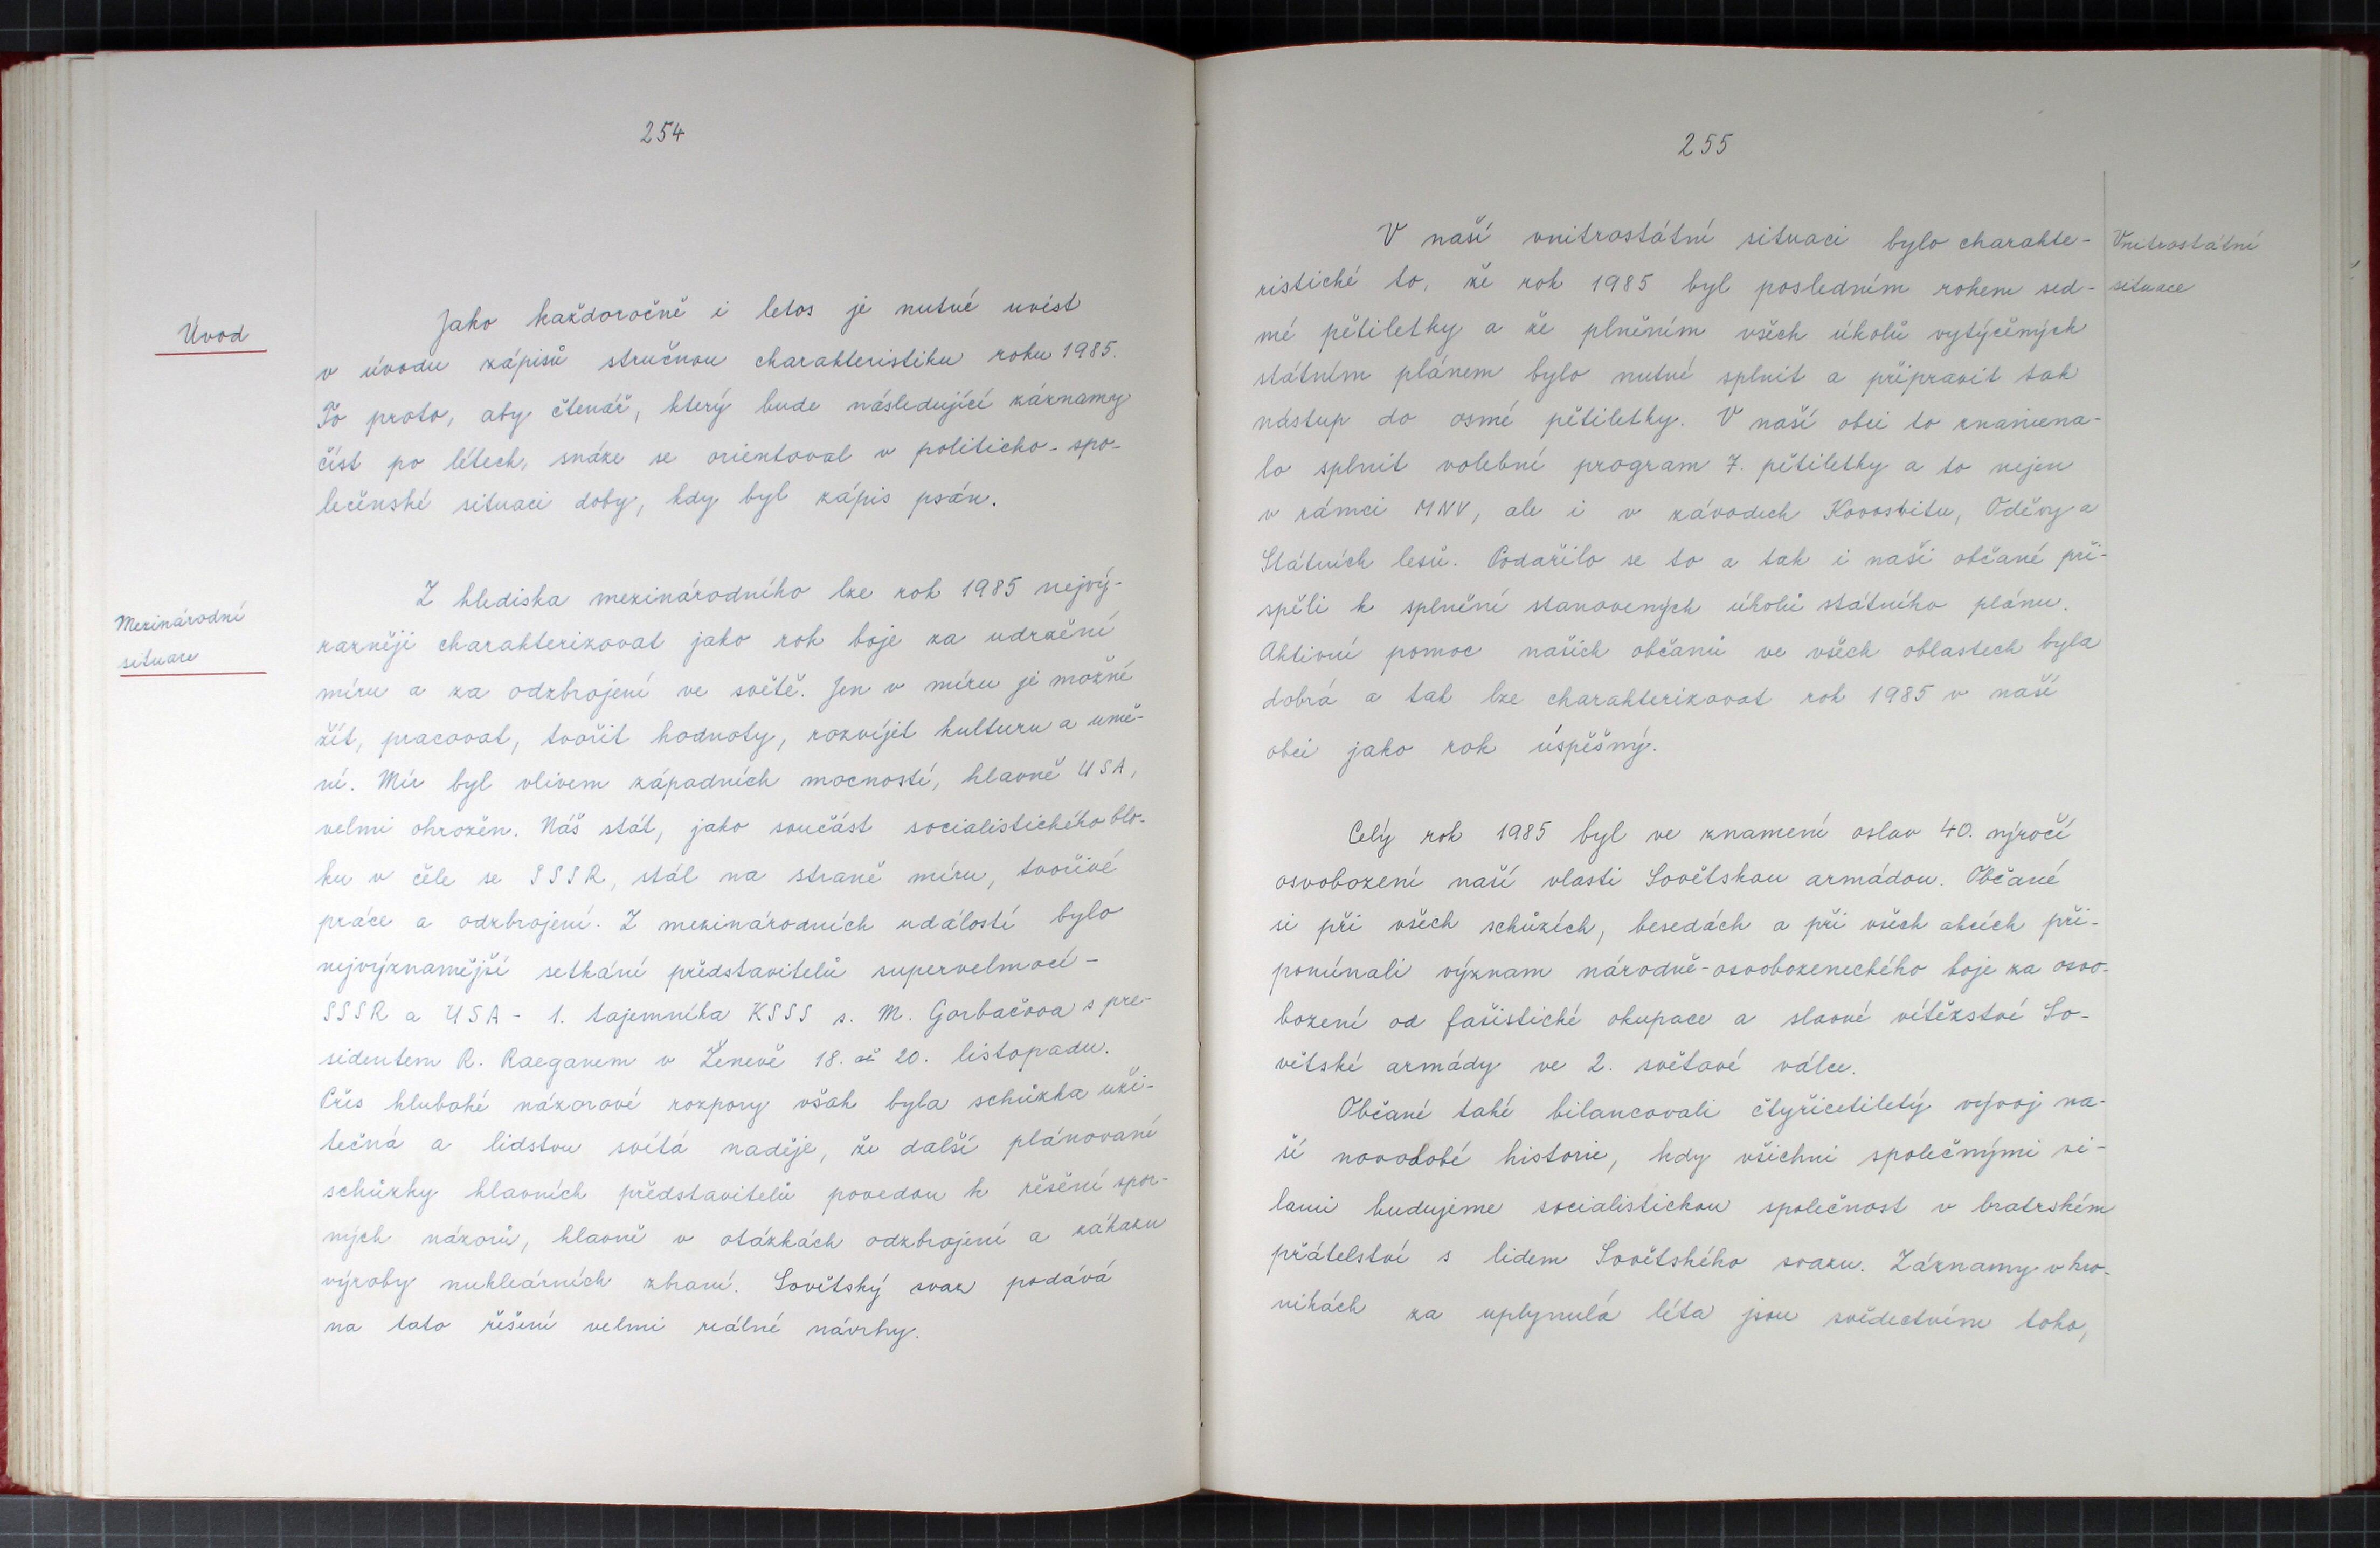 254
Úvod
Jako každoročně i letos je nutné uvést
v úvodu zápisů stručnou charakteristiku roku 1985.
To proto, aby čtenář, který bude následující záznamy
číst po létech, snáze se orientoval v politicko-spo-
lečenské situaci doby, kdy byl zápis psán.
Mezinárodní
situace
Z hlediska mezinárodního lze rok 1985 nejvý-
razněji charakterizovat jako rok boje za udržení
míru a za odzbrojení ve světě. Jen v míru je možné
žít, pracovat, tvořit hodnoty, rozvíjet kulturu a umě-
ní. Mír byl vlivem západních mocností, hlavně USA,
velmi ohrožen. Náš stát, jako součást socialistického blo-
ku v čele se SSSR, stál na straně míru, tvořivé
práce a odzbrojení. Z mezinárodních událostí bylo
nejvýznamější setkání představitelů supervelmocí -
SSSR a USA - 1. tajemníka KSSS s. M. Gorbačova s pre-
sidentem R. Raeganem v Ženevě 18. až 20. listopadu.
Přes hluboké názorové rozpory však byla schůzka uži-
tečná a lidstvu svítá naděje, že další plánované
schůzky hlavních představitelů povedou k řešení spor-
ných názorů, hlavně v otázkách odzbrojení a zákazu
výroby nukleárních zbraní. Sovětský svaz podává
na tato řešení velmi reálné návrhy.
255
Vnitrostátní
situace
V naší vnitrostátní situaci bylo charakte-
ristické to, že rok 1985 byl posledním rokem sed-
mé pětiletky a že plněním všech úkolů vytýčených
státním plánem bylo nutné splnit a připravit tak
nástup do osmé pětiletky. V naší obci to znamena-
lo splnit volební program 7. pětiletky a to nejen
v rámci MNV, ale i v závodech Kovosvitu, Oděvy a
Státních lesů. Podařilo se to a tak i naši občané při-
spěli k splnění stanovených úkolů státního plánu.
Aktivní pomoc našich občanů ve všech oblastech byla
dobrá a tak lze charakterizovat rok 1985 v naší
obci jako rok úspěšný.
Celý rok 1985 byl ve znamení oslav 40. výročí
osvobození naší vlasti Sovětskou armádou. Občané
si při všech schůzích, besedách a při všech akcích při-
pomínali význam národně-osvobozeneckého boje za osvo-
bození od fašistické okupace a slavné vítězství So-
větské armády ve 2. světové válce.
Občané také bilancovali čtyřicetiletý vývoj na-
ší novodobé historie, kdy všichni společnými si-
lami budujeme socialistickou společnost v bratrském
přátelství s lidem Sovětského svazu. Záznamy v kro-
nikách za uplynulá léta jsou svědectvím toho,